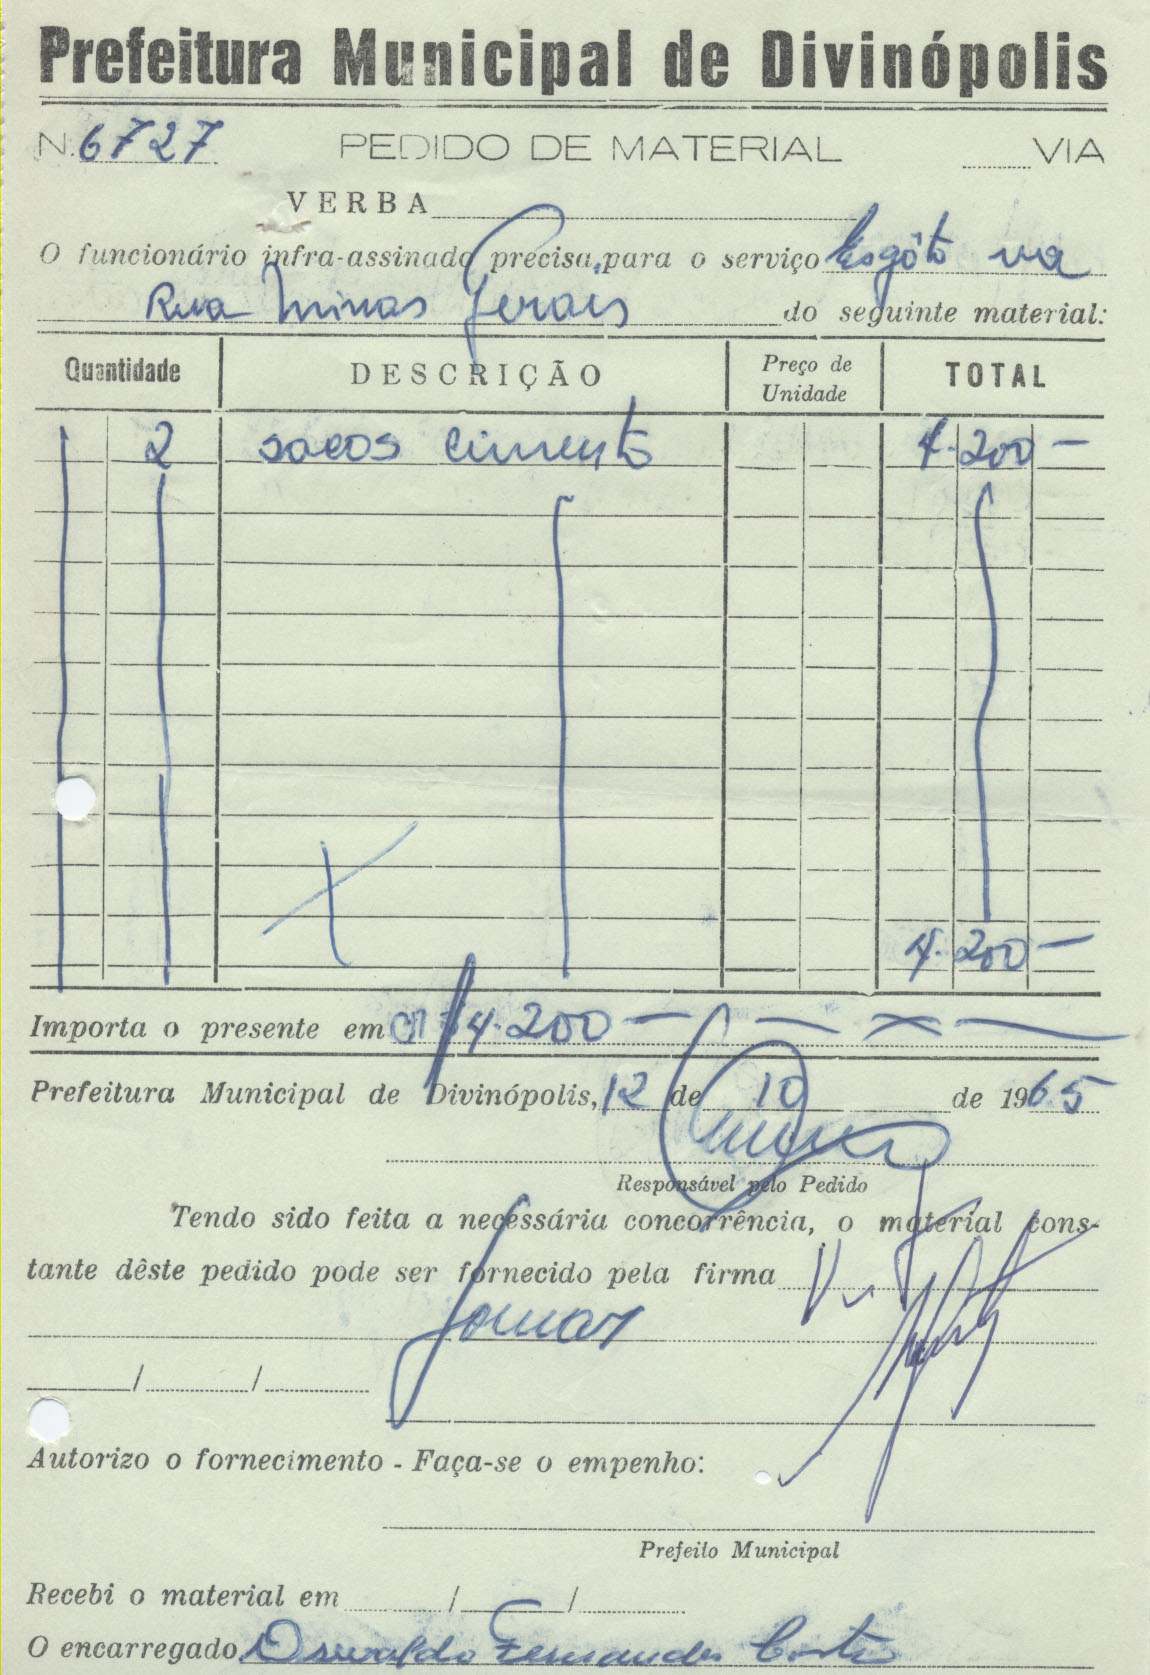 Prefeitura Municipal de Divinópolis
N. 6727 PEDIDO DE MATERIAL VIA
VERBA
O funcionário infra-assinado precisa, para o serviço Esgôto na
Rua Minas Gerais do seguinte material:
Quantidade DESCRIÇÃO Preço de Unidade TOTAL
2 sacos cimento 4.200 —
4.200 —
Importa o presente em Cr$ 4.200 —
Prefeitura Municipal de Divinópolis, 12 de 10 de 1965
Responsável pelo Pedido
Tendo sido feita a necessária concorrência, o material cons-
tante dêste pedido pode ser fornecido pela firma
/ /
Autorizo o fornecimento - Faça-se o empenho:
Prefeito Municipal
Recebi o material em / /
O encarregado Oswaldo Fernandes Costa